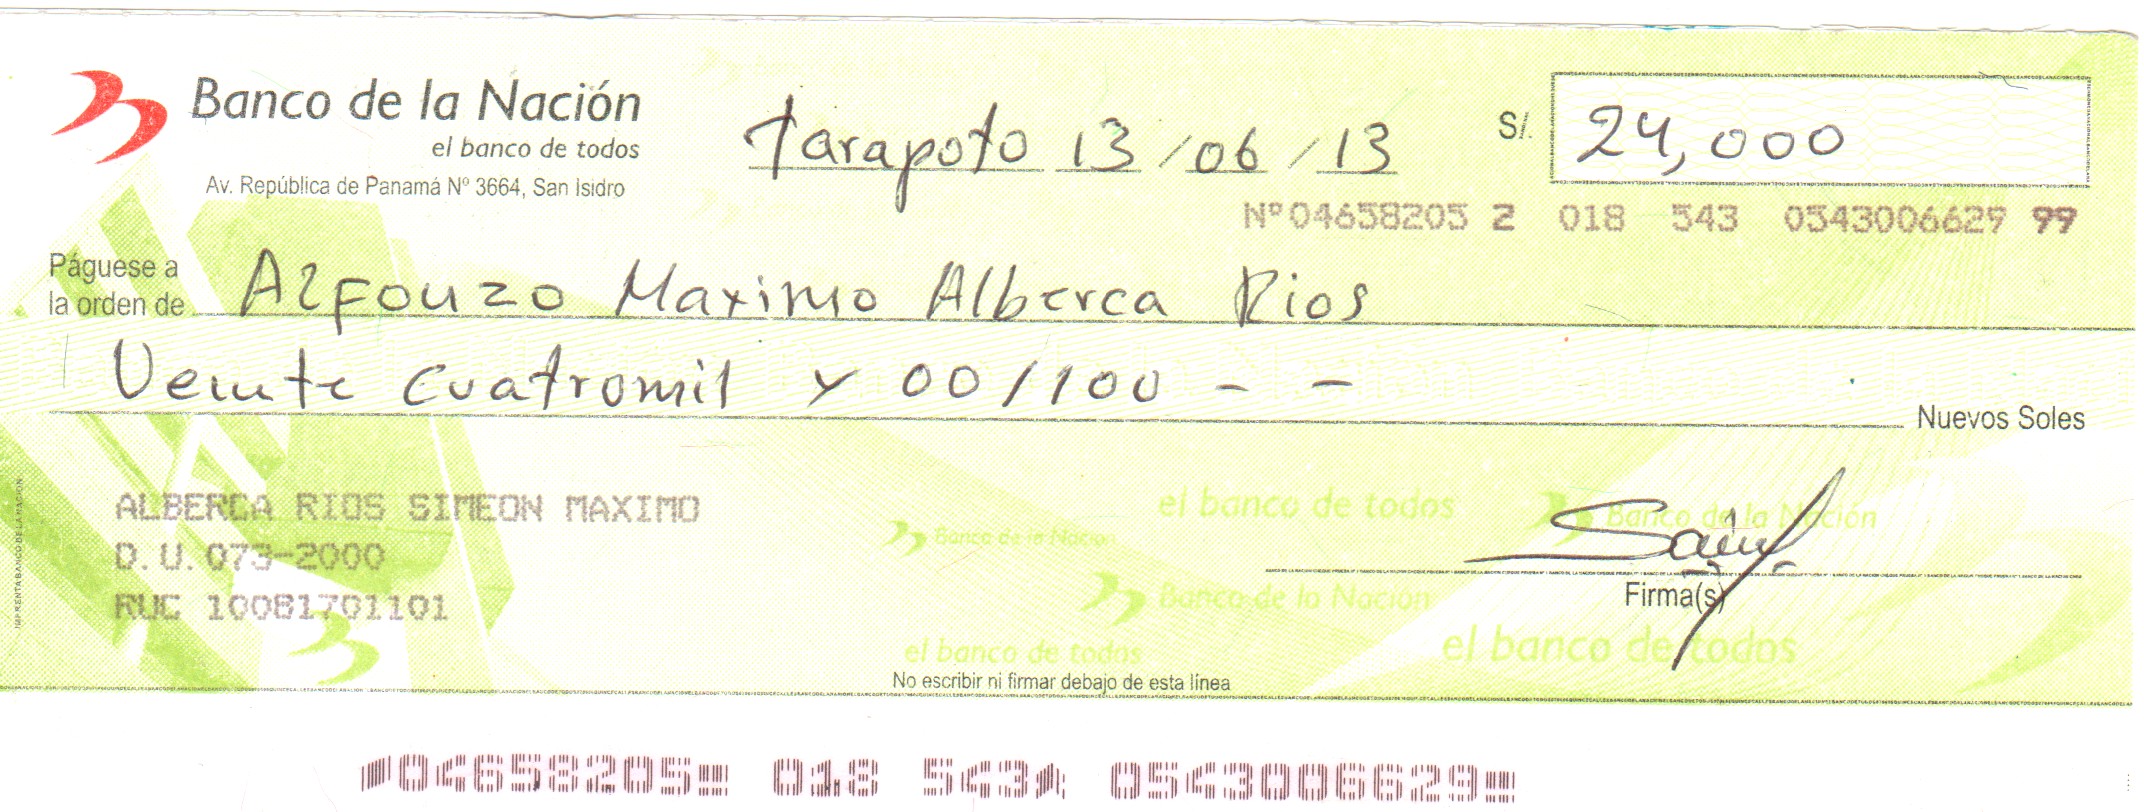 Banco de la Nación
el banco de todos
Av. República de Panamá Nº 3664, San Isidro
Tarapoto 13/06/13
S/. 24,000
Nº04658205 2 018 543 0543006629 99
Páguese a
la orden de Alfonzo Maximo Alberca Rios
Veinte cuatromil y 00/100 - -
Nuevos Soles
ALBERCA RIOS SIMEON MAXIMO
D.U.073-2000
RUC 10081701101
el banco de todos
Banco de la Nación
Banco de la Nación
Banco de la Nación
Firma(s)
el banco de todos
el banco de todos
No escribir ni firmar debajo de esta línea
IMPRENTA BANCO DE LA NACION
04658205 018 543 0543006629